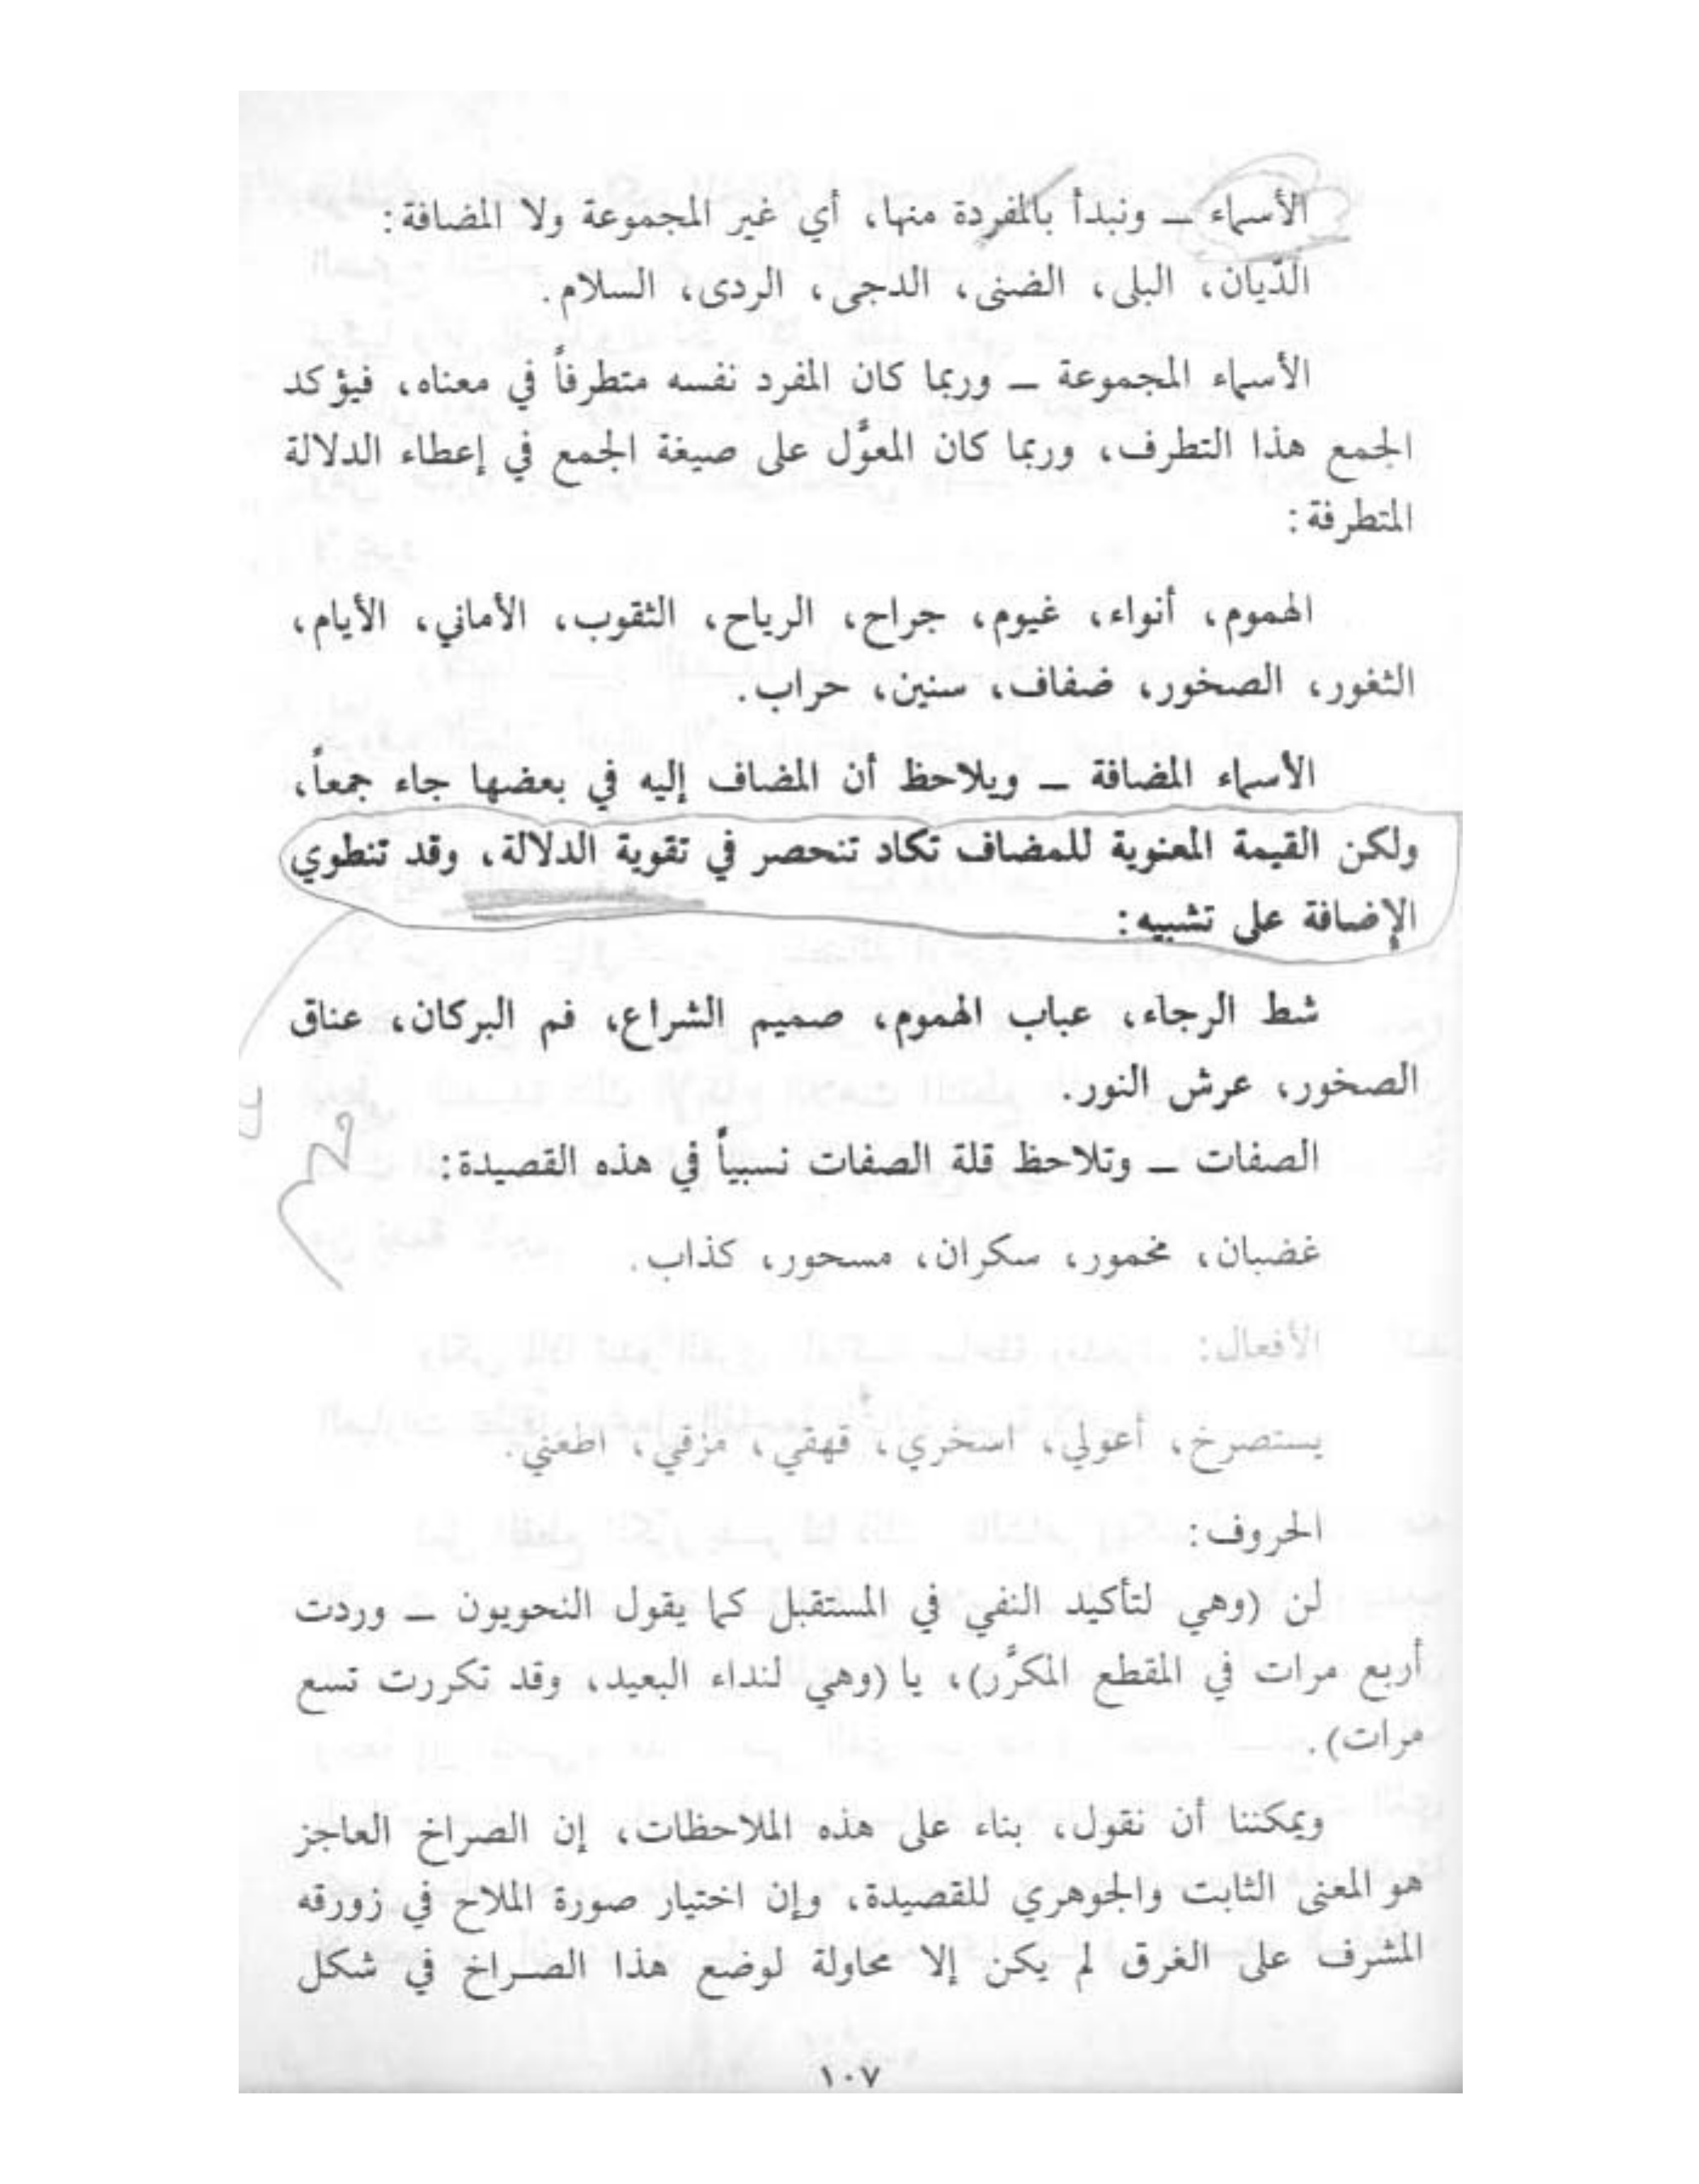 الأسماء ــ ونبدأ بالمفردة منها، أي غير المجموعة ولا المضافة:
الدّيان، البلى، الضنى، الدجى، الردى، السلام.
الأسماء المجموعة ــ وربما كان المفرد نفسه متطرفاً في معناه، فيؤكد
الجمع هذا التطرف، وربما كان المعوَّل على صيغة الجمع في إعطاء الدلالة
المتطرفة:
الهموم، أنواء، غيوم، جراح، الرياح، الثقوب، الأماني، الأيام،
الثغور، الصخور، ضفاف، سنين، حراب.
الأسماء المضافة ــ ويلاحظ أن المضاف إليه في بعضها جاء جمعاً،
ولكن القيمة المعنوية للمضاف تكاد تنحصر في تقوية الدلالة، وقد تنطوي
الإضافة على تشبيه:
شط الرجاء، عباب الهموم، صميم الشراع، فم البركان، عناق
الصخور، عرش النور.
الصفات ــ وتلاحظ قلة الصفات نسبياً في هذه القصيدة:
غضبان، مخمور، سكران، مسحور، كذاب.
الأفعال:
يستصرخ، أعولي، اسخري، قهقي، مزقي، اطعني.
الحروف:
لن (وهي لتأكيد النفي في المستقبل كما يقول النحويون ــ وردت
أربع مرات في المقطع المكرَّر)، يا (وهي لنداء البعيد، وقد تكررت تسع
مرات).
ويمكننا أن نقول، بناء على هذه الملاحظات، إن الصراخ العاجز
هو المعنى الثابت والجوهري للقصيدة، وإن اختيار صورة الملاح في زورقه
المشرف على الغرق لم يكن إلا محاولة لوضع هذا الصراخ في شكل
١٠٧